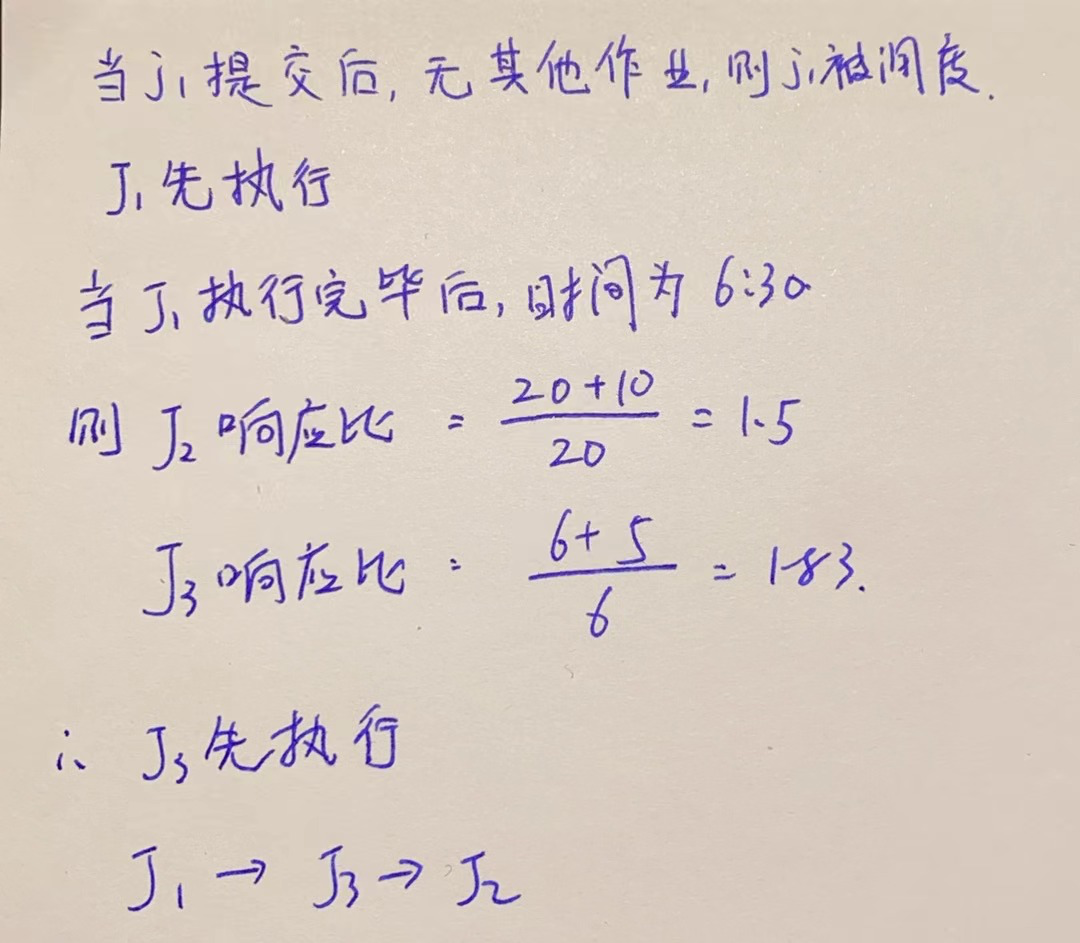 当j₁提交后,无其他作业,则j₁被调度.
J₁先执行
当J₁执行完毕后,时间为6:30
则 J₂响应比 = (20+10)/20 = 1.5
J₃响应比 = (6+5)/6 = 1.83.
∴ J₃先执行
J₁ → J₃ → J₂